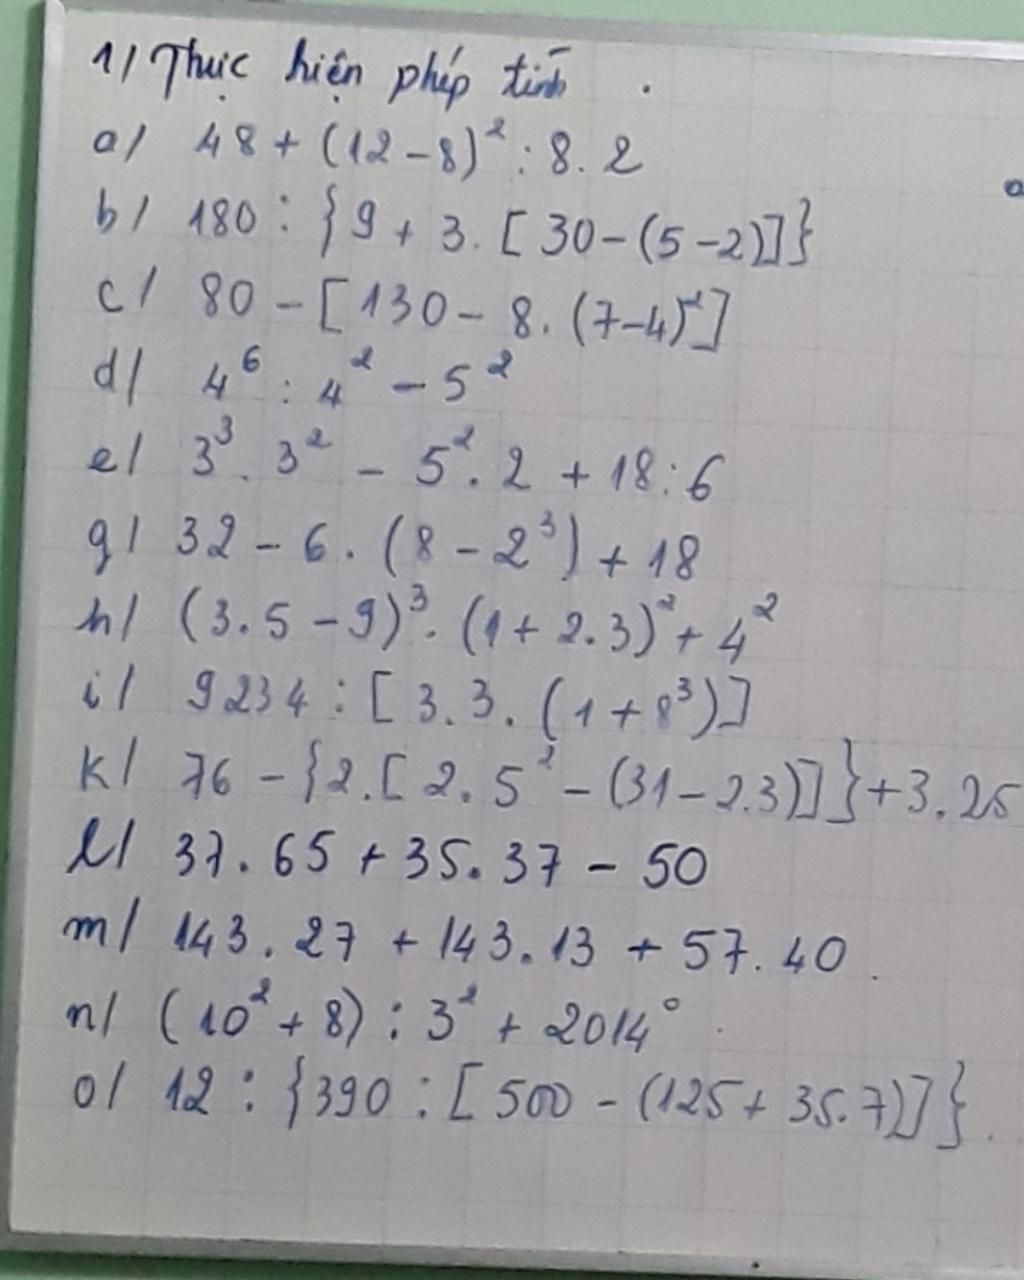 1/ Thực hiện phép tính.
a/ 48 + (12 - 8)² : 8. 2
b/ 180 : {9 + 3. [30 - (5 - 2)]}
c/ 80 - [130 - 8. (7 - 4)²]
d/ 4⁶ : 4² - 5²
e/ 3³. 3² - 5². 2 + 18 : 6
g/ 32 - 6. (8 - 2³) + 18
h/ (3. 5 - 9)³. (1 + 2. 3)² + 4²
i/ 9234 : [3. 3. (1 + 8³)]
k/ 76 - {2. [2. 5² - (31 - 2.3)]} + 3. 25
l/ 37. 65 + 35. 37 - 50
m/ 143. 27 + 143. 13 + 57. 40.
n/ (10² + 8) : 3² + 2014⁰.
o/ 12 : {390 : [500 - (125 + 35. 7)]}.